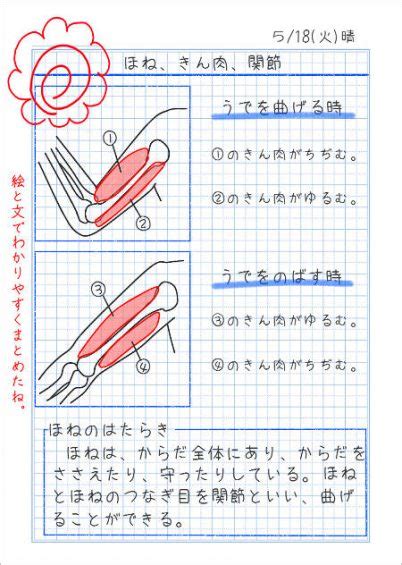 5/18(火)晴
ほね、きん肉、関節
うでを曲げる時
①
①のきん肉がちぢむ。
②
②のきん肉がゆるむ。
絵と文でわかりやすくまとめたね。
うでをのばす時
③
③のきん肉がゆるむ。
④
④のきん肉がちぢむ。
ほねのはたらき
ほねは、からだ全体にあり、からだを
ささえたり、守ったりしている。ほね
とほねのつなぎ目を関節といい、曲げ
ることができる。